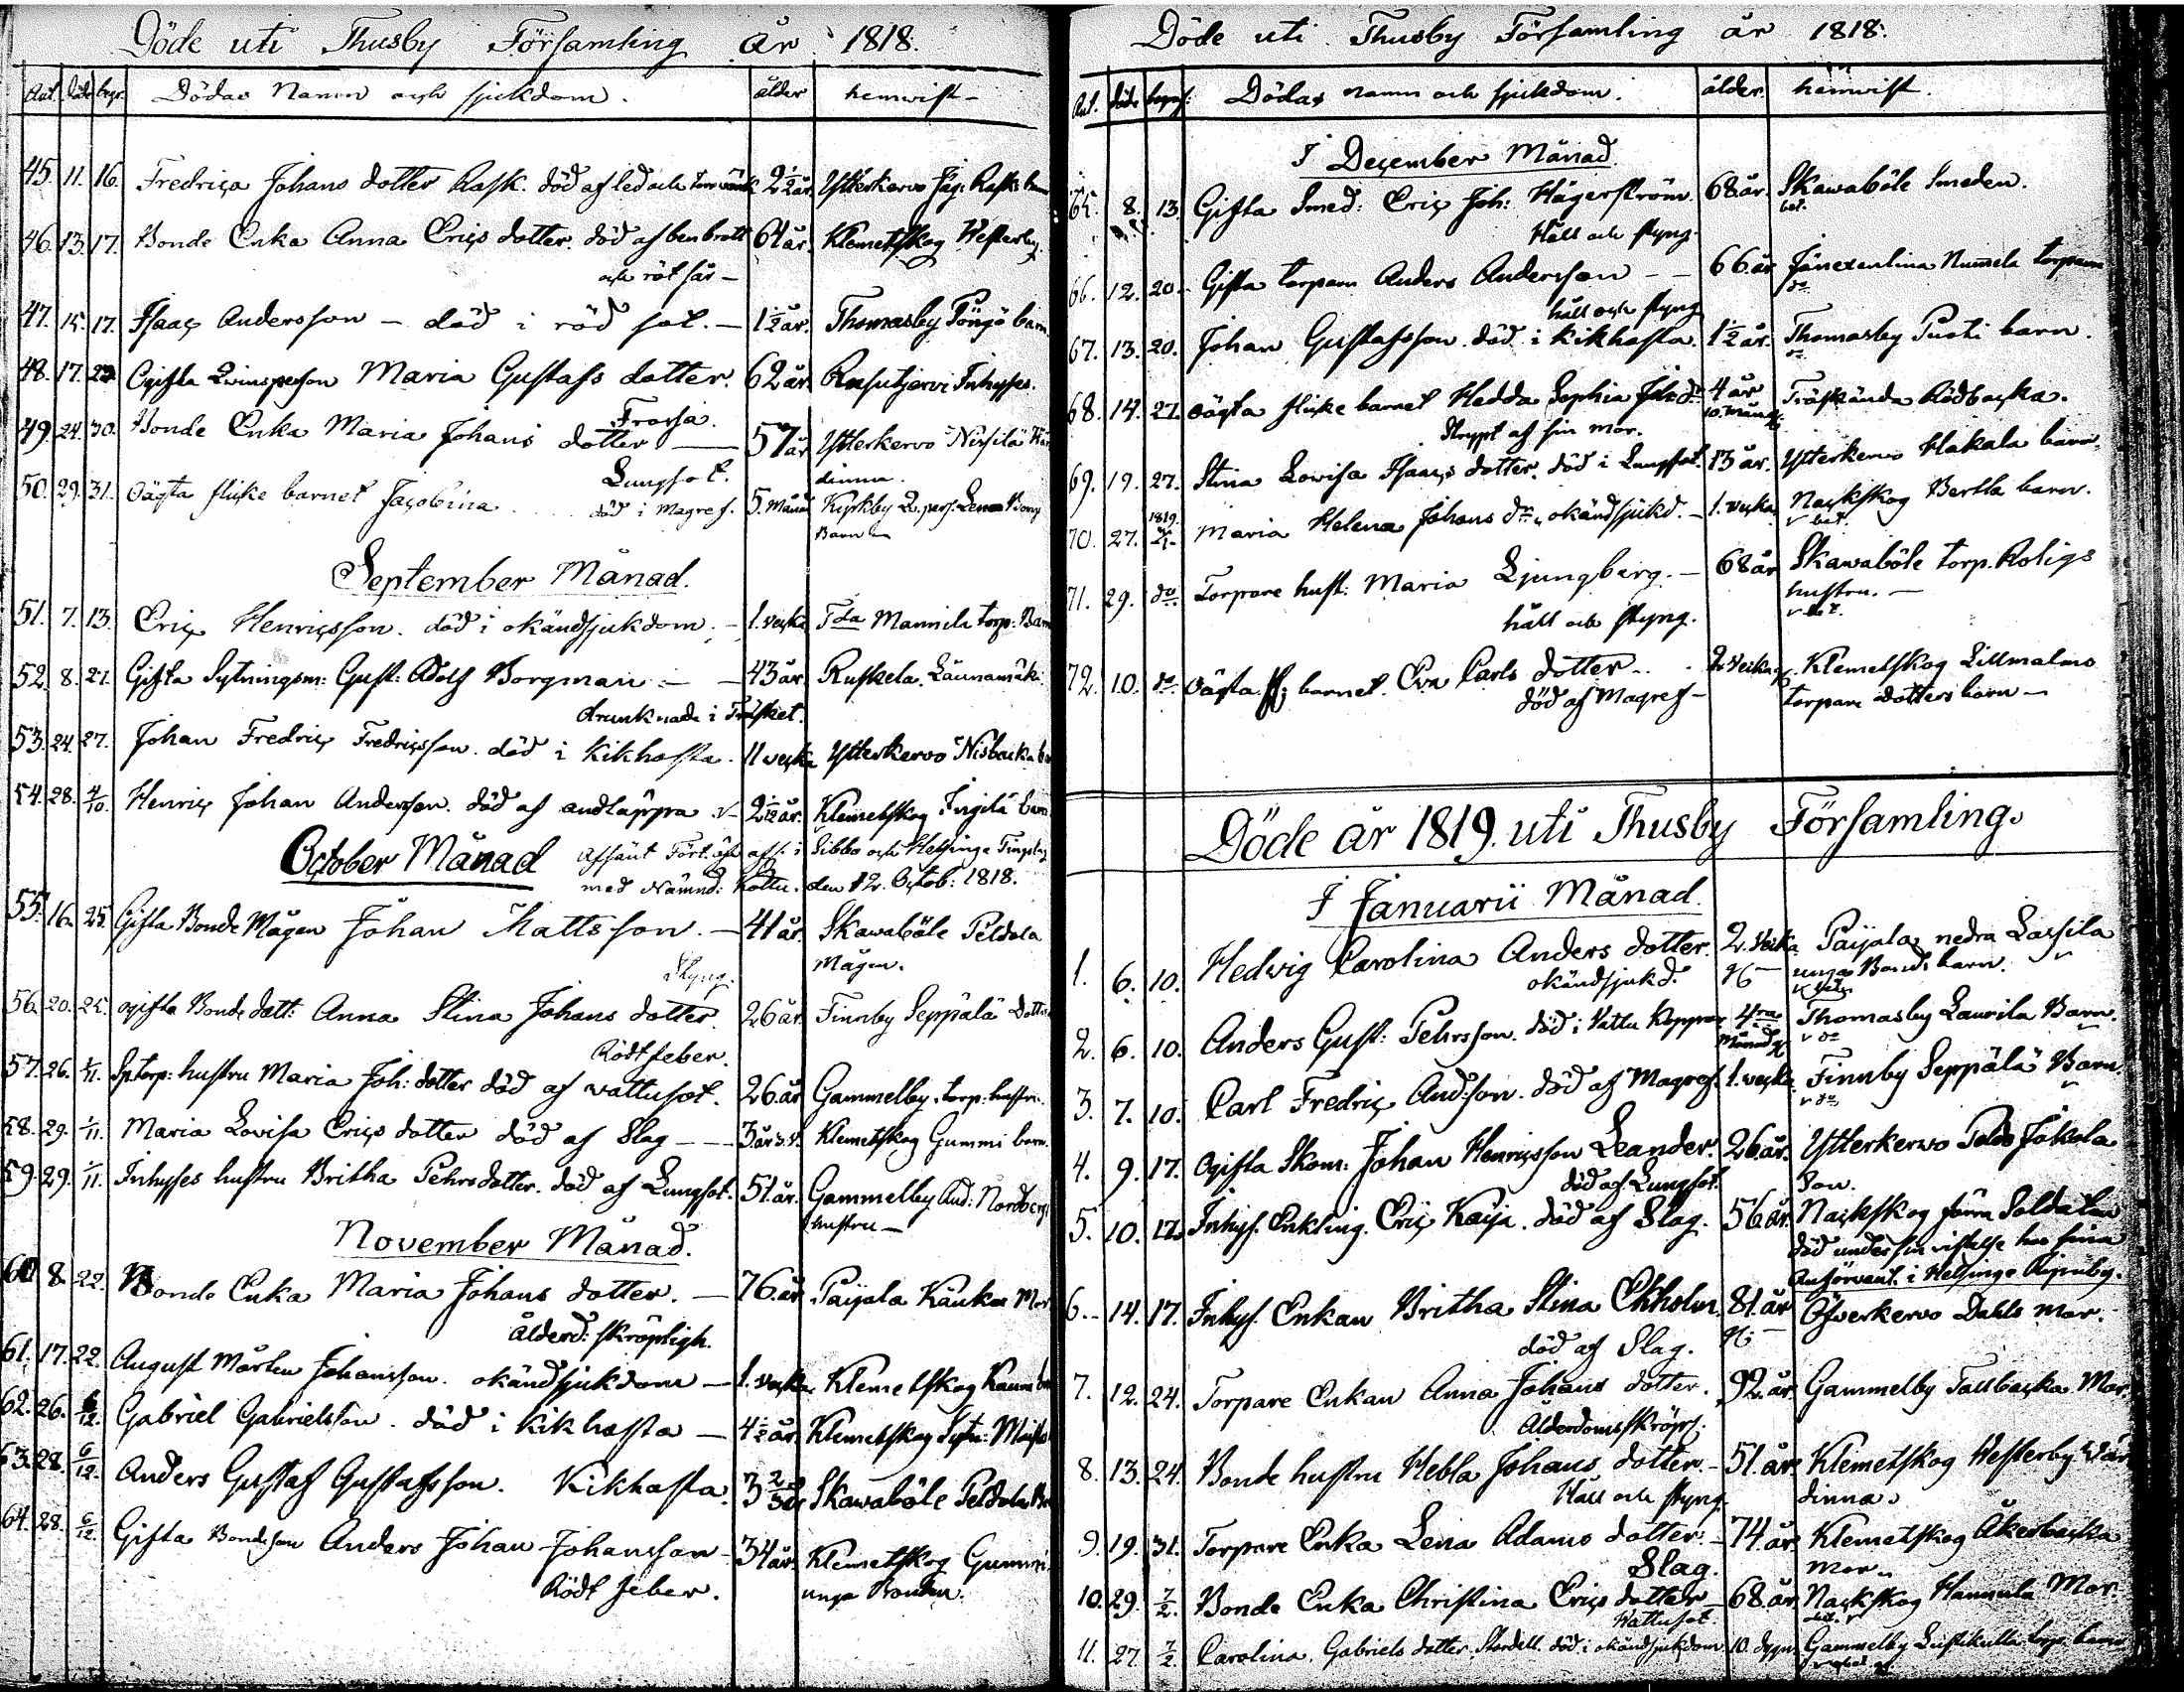 Döde uti Thusby Församling år 1818.
Ant. döde begr. Dödas Namn och sjukdom. ålder hemwist
45. 11. 16. Fredrica Johans dotter Rask. död af led och 2 1/2 år. Ytterkervo Jäg: Rasks barn
46. 13. 17. Bonde Enka Anna Erics dotter. död af benbrott 64 år. Klemetskog Westerby.
och röt sår
47. 15. 17. Isaac Andersson - död i röd sot. - 1 1/2 år. Thomasby Pöngö barn.
48. 17. 23 Ogifta Qwinsperson Maria Gustafs dotter. 62 år. Rusutjervi Inhyses.
Frossa.
49 24. 30. Bonde Enka Maria Johans dotter 57 år Ytterkervo Nissilä Wär
Lungsot. dinna.
50. 29. 31. Oägta flicke barnet Jacobina död i Magref. 5. Månad Kyrkby Q. pers. Lena Borg
Barn
September Månad.
51. 7. 13. Eric Henricsson. död i okänd sjukdom. - 1. wecka Mannila torp: Barn
52. 8. 21. Gifta Sytningsm: Gust: Adolf Borgman - 43 år. Ruskela. Launamäki.
drunknade i Träsket.
53. 24. 27. Johan Fredric Fredricsson. död i Kikhosta. 11 wecka Ytterkervo Nisbacka
54. 28. 4/10. Henric Johan Andersson. död af andtäppa 2 1/2 år. Klemetskog Ingilä barn
October Månad Afsänt Fört. öfv. afl: i Sibbo och Helsinge Tingslag
med Nämnd: den 12. Octob: 1818.
55. 16. 25. Gifta Bonde Mågen Johan Mattsson. - 41 år. Skawaböle Peldola
Styng. Mågen.
56. 20. 25. ogifta Bonde dott: Anna Stina Johans dotter. 26 år. Finnby Seppälä Dotter
Rödt feber.
57. 26. 1/11. Sptorp: hustru Maria Joh: dotter död af wattusot. 26 år Gammelby. torp: hustru.
58. 29. 1/11. Maria Lovisa Erics dotter död af Slag - 3 år Klemetskog Gummi barn.
59. 29. 1/11. Inhyses hustru Britha Pehrs dotter. död af Lungsot. 51. år. Gammelby And: Nordbergs
hustru
November Månad.
60 8. 22. Bonde Enka Maria Johans dotter. - 76. år Paijala Kauka Mor
ålderd: skröpligh.
61. 17. 22. August Mårten Johansson. okänd sjukdom - 1. wecka Klemetskog
62. 26. 6/12. Gabriel Gabrielsson. död i Kikhosta - 4 1/2 år. Klemetskog Sytn:
63. 28. 6/12. Anders Gustaf Gustafsson. Kikhosta. 3 år Skawaböle Peldola
64. 28. 6/12. Gifta Bondeson Anders Johan Johansson - 34 år. Klemetskog Gummi
Rödt feber. unga Bonden.
Döde uti Thusby Församling år 1818.
Ant. döde begraf: Dödas namn och sjukdom. ålder. hemwist.
I December Månad.
65. 8. 13. Gifta Smed: Eric Joh: Hägerström. 68 år. Skawaböle Smeden.
Håll och styng.
66. 12. 20. Gifta torparn Anders Andersson - - 66. år Jänexenlina Numela torparn
håll och styng
67. 13. 20. Johan Gustafsson. död i Kikhosta. 1 1/2 år. Thomasby Puoti barn.
68. 14. 27. oägta flicke barnet Hedda Sophia 4 år Träskända Rödbacka.
Strypt af sin mor. 10. Mån
69. 19. 27. Stina Lowisa Isaacs dotter. död i Lungsot. 13 år. Ytterkervo Hakala barn.
1819.
70. 27. Maria Helena Johans dr. okänd sjukd. - 1. wecka Nackskog Bertla barn.
71. 29. do Torpare hust: Maria Ljungberg. - 68 år Skawaböle torp. Roligs
håll och styng. hustru.
72. 10. do Oägta barnet. Eva Carls dotter 2 weck Klemetskog Lillmalms
död af Magref - torpare dotters barn -
Döde år 1819. uti Thusby Församling.
I Januarii Månad.
1. 6. 10. Hedvig Carolina Anders dotter. 2. weck Paijala nedra Lassila
okänd sjukd. unga Bonds barn.
2. 6. 10. Anders Gust: Pehrsson. död i Vattu Koppor 4ra Månad Thomasby Laurila Barn.
3. 7. 10. Carl Fredric And:son. död af Magref. 1. wecka Finnby Seppälä Barn.
4. 9. 17. Ogifta Skom: Johan Henricsson Leander. 26. år. Ytterkerwo Jokela
död af Lungsot. Son.
5. 10. 17. Inhys. Enkling. Eric Kaija. död af Slag. 56 år. Nackskog förra Soldaten
död under sin vistelse hos sina
Anförvant. i Helsinge
6. - 14. 17. Inhys. Enkan Britha Stina Ekholm. 81. år Öfverkervo Dahls mor.
död af Slag.
7. 12. 24. Torpare Enkan Anna Johans dotter. 92. år. Gammelby Tallbacka Mor.
Ålderdomsskröpl.
8. 13. 24. Bonde hustru Hebla Johans dotter. - 51. år. Klemetskog Westerby Wär
Håll och styng. dinna.
9. 19. 31. Torpare Enka Lena Adams dotter. - 74 år. Klemetskog Åkerbacka
Slag. Mor.
10. 29. 7/2. Bonde Enka Christina Erics dotter - 68. år. Nackskog Hannula Mor.
Wattusot
11. 27. 7/2. Carolina. Gabriels dotter. död i okänd sjukdom 10. dygn Gammelby torp: barn